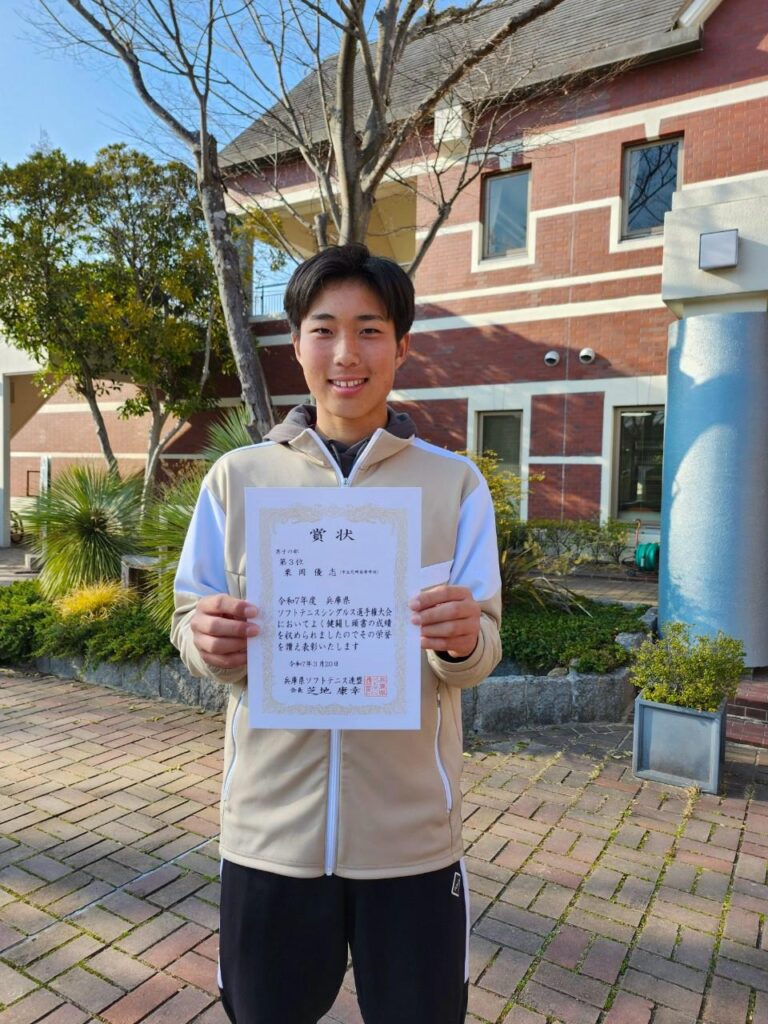 賞状
男子の部
第3位
栗岡優志
令和7年度 兵庫県
ソフトテニスシングルス選手権大会
においてよく健闘し頭書の成績
を収められましたのでその栄誉
を讃え表彰いたします
令和7年3月20日
兵庫県ソフトテニス連盟
会長 芝地康幸